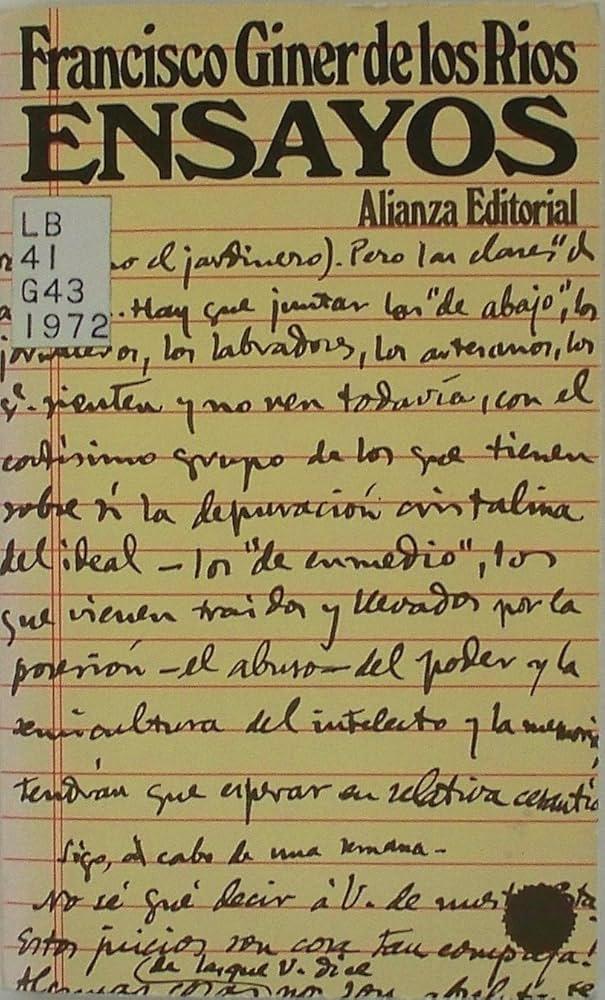 Francisco Giner de los Rios
ENSAYOS
Alianza Editorial
LB
41
G43
1972
el jardinero). Pero las clases "d
.. Hay que juntar los "de abajo", los
los labradores, los artesanos, los
qe. sienten y no ven todavía, con el
cortísimo grupo de los que tienen
sobre sí la depuración cristalina
del ideal - los "de enmedio", los
que vienen traídos y llevados por la
posesión - el abuso - del poder y la
semicultura del intelecto y la memoria,
tendrán que esperar en relativa cesantía
Sigo, al cabo de una semana -
No sé qué decir á V. de
Estos juicios son cosa tan compleja!
(de las que V. dice